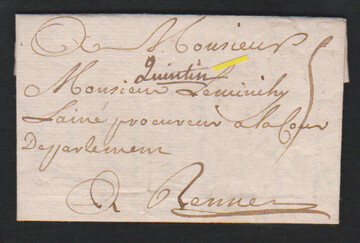 A Monsieur
Quintin
Monsieur Leminihy
Lainé procureur a la Cour
Deparlement
A Rennes